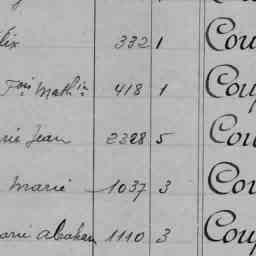 lix 332 1 Cou
Fois Mathin 418 1 Coup
rie Jean 2328 5 Cou
Marie 1037 3 Cou
arie abraham 1110 3 Coup